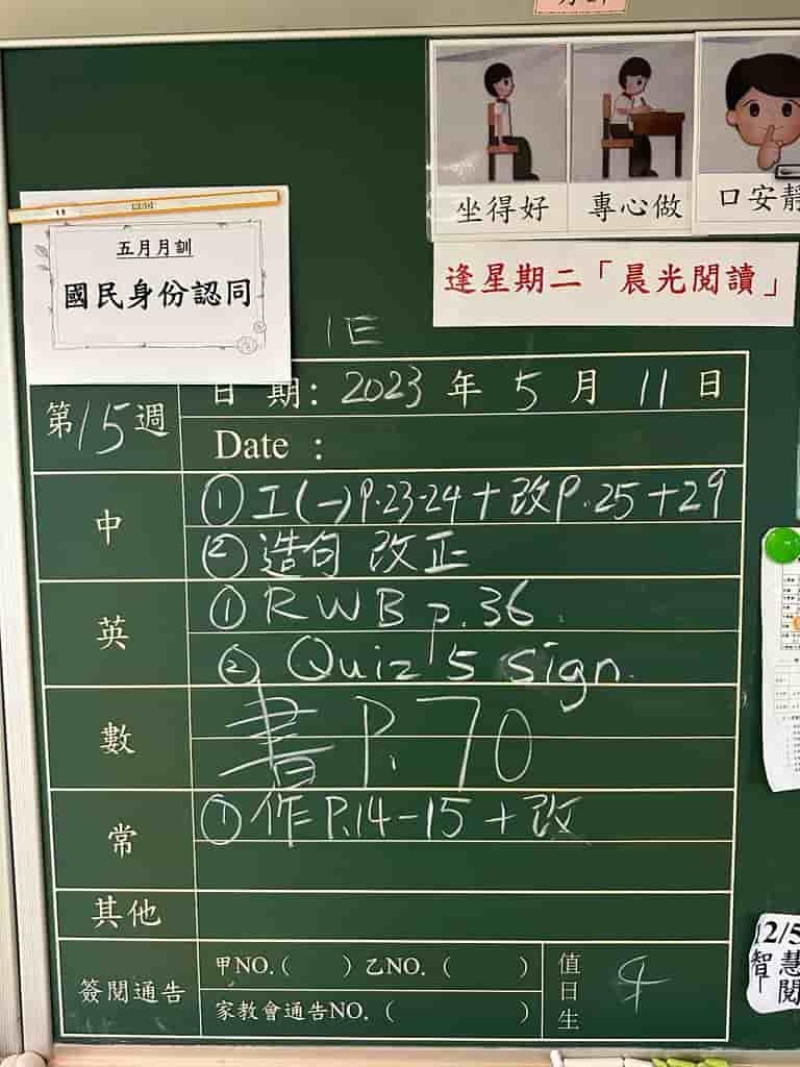 坐得好
專心做
口安靜
逢星期二「晨光閱讀」
五月月訓
國民身份認同
1E
第15週
日期: 2023 年 5 月 11 日
Date :
中
① 工(一)P.23-24 + 改P.25+29
② 造句 改正
英
① RWB p.36
② Quiz 5 sign.
數
書 P.70
常
① 作 P.14-15 + 改
其他
簽閱通告
甲NO.( ) 乙NO. ( )
家教會通告NO. ( )
值日生
12/5
智慧
閱